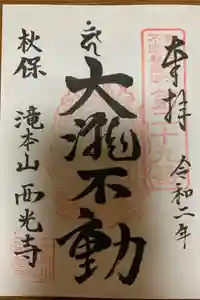 奉拝
令和二年
大瀧不動
秋保
滝本山西光寺